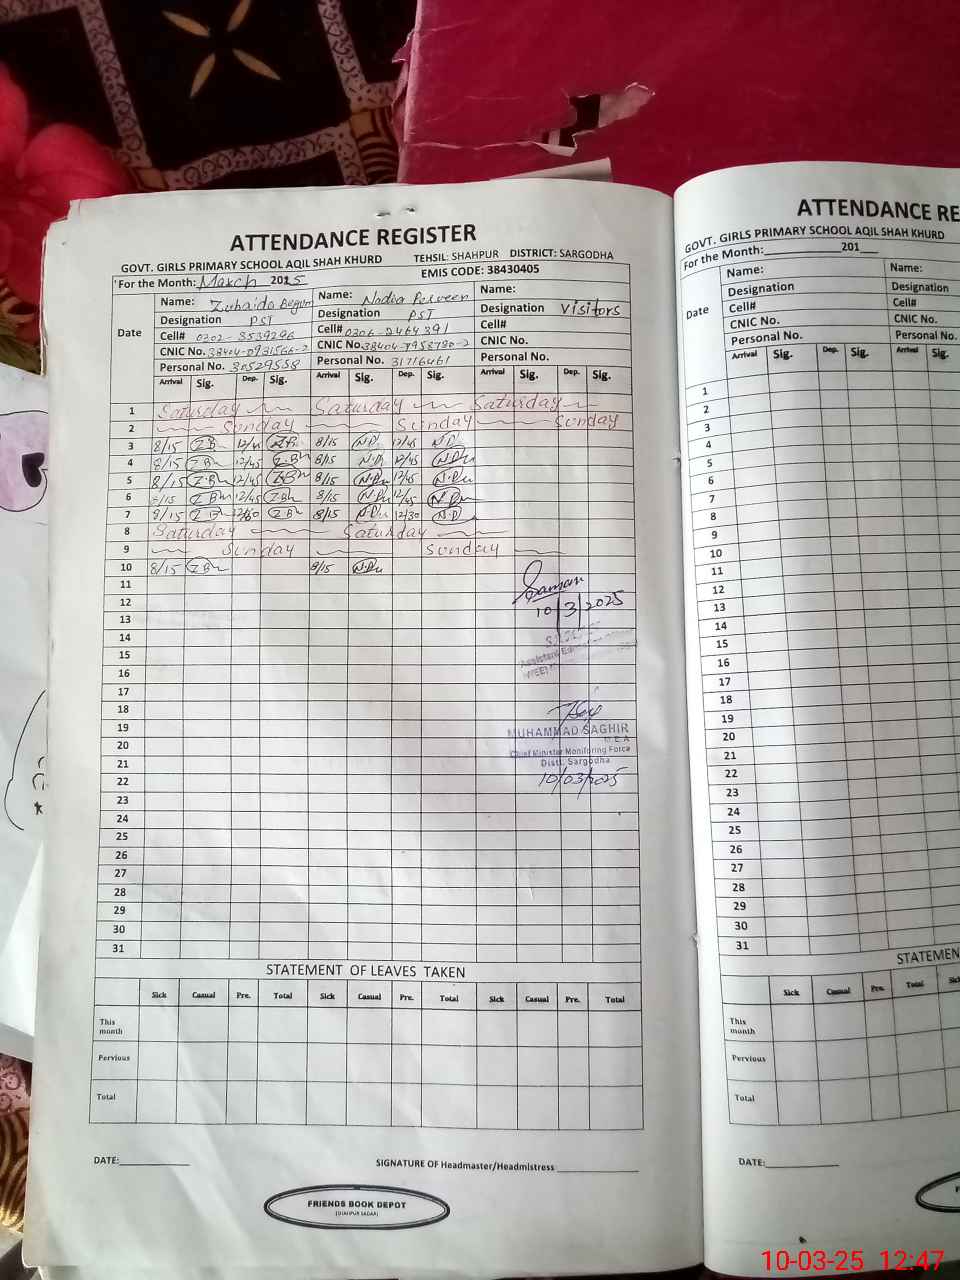 ATTENDANCE REGISTER
GOVT. GIRLS PRIMARY SCHOOL AQIL SHAH KHURD TEHSIL: SHAHPUR DISTRICT: SARGODHA
For the Month: March 2025 EMIS CODE: 38430405
Date
Name: Zubaida Begum Name: Nadia Perveen Name:
Designation PST Designation PST Designation Visitors
Cell# 0302-8539296 Cell# 0306-2464391 Cell#
CNIC No. CNIC No. CNIC No.
Personal No. 30529558 Personal No. 31716461 Personal No.
Arrival Sig. Dep. Sig. Arrival Sig. Dep. Sig. Arrival Sig. Dep. Sig.
1 Saturday Saturday Saturday
2 Sunday Sunday Sunday
3 8/15 ZB 12/45 8/15 N.D 12/45 N.D
4 8/15 ZB 12/45 ZB 8/15 N.D 12/45 N.D
5 8/15 ZB 12/45 ZB 8/15 N.D 12/45 N.D
6 8/15 ZB 12/45 ZB 8/15 N.D 12/45 N.D
7 8/15 ZB ZB 8/15 N.D 12/30 N.D
8 Saturday Saturday
9 Sunday Sunday
10 8/15 ZB 8/15 N.D
11
12
13
14
15
16
17
18
19
20
21
22
23
24
25
26
27
28
29
30
31
10/3/2025
MUHAMMAD SAGHIR
M.E.A
Chief Minister Monitoring Force
Distt. Sargodha
10/03/2025
STATEMENT OF LEAVES TAKEN
Sick Casual Pre. Total Sick Casual Pre. Total Sick Casual Pre. Total
This month
Pervious
Total
DATE: SIGNATURE OF Headmaster/Headmistress
FRIENDS BOOK DEPOT
ATTENDANCE RE
GOVT. GIRLS PRIMARY SCHOOL AQIL SHAH KHURD
For the Month: 201
Date
Name: Name:
Designation Designation
Cell# Cell#
CNIC No. CNIC No.
Personal No. Personal No.
Arrival Sig. Dep. Sig. Arrival Sig.
1
2
3
4
5
6
7
8
9
10
11
12
13
14
15
16
17
18
19
20
21
22
23
24
25
26
27
28
29
30
31
STATEMEN
Sick Casual Pre. Total
This month
Pervious
Total
DATE:
10-03-25 12:47